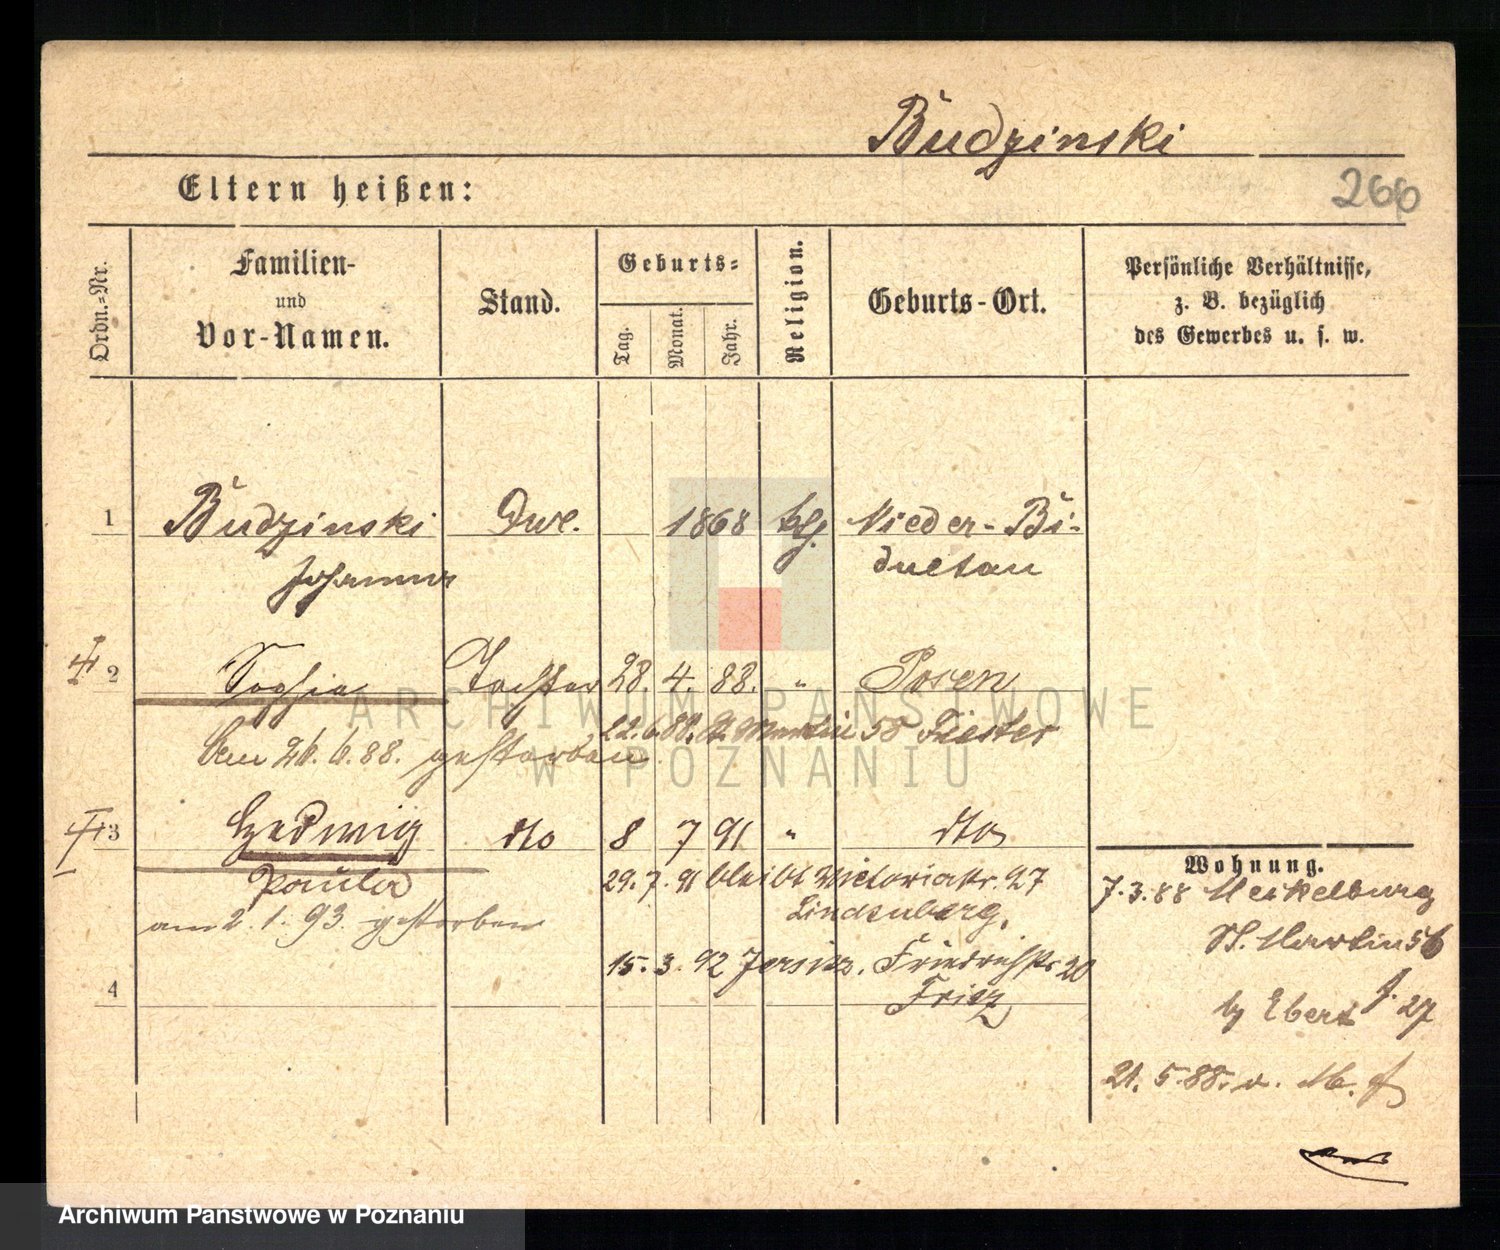 Budzinski
Eltern heißen:
266
Ordn.-Nr.
Familien-
und
Vor-Namen.
Stand.
Geburts-
Tag.
Monat.
Jahr.
Religion.
Geburts-Ort.
Persönliche Verhältnisse,
z. B. bezüglich
des Gewerbes u. s. w.
1 Budzinski 1868 Nieder-Bi-
Johanna
2 Sophia Tochter 28. 4. 88. " Posen
22.6.88. St. Martin 58
den 26.6.88. gestorben
3 Hedwig dto 8 7 91 " dto
Paula
29.7.91 bleibt Victoriastr. 27
Lindenberg.
am 2.1.93. gestorben
15.3.92 Jersitz. Friedrichstr 20
4
Wohnung.
7.3.88
St. Martin 56
by Ebert 27
21.5.88. v.
ARCHIWUM PAŃSTWOWE
W POZNANIU
Archiwum Państwowe w Poznaniu